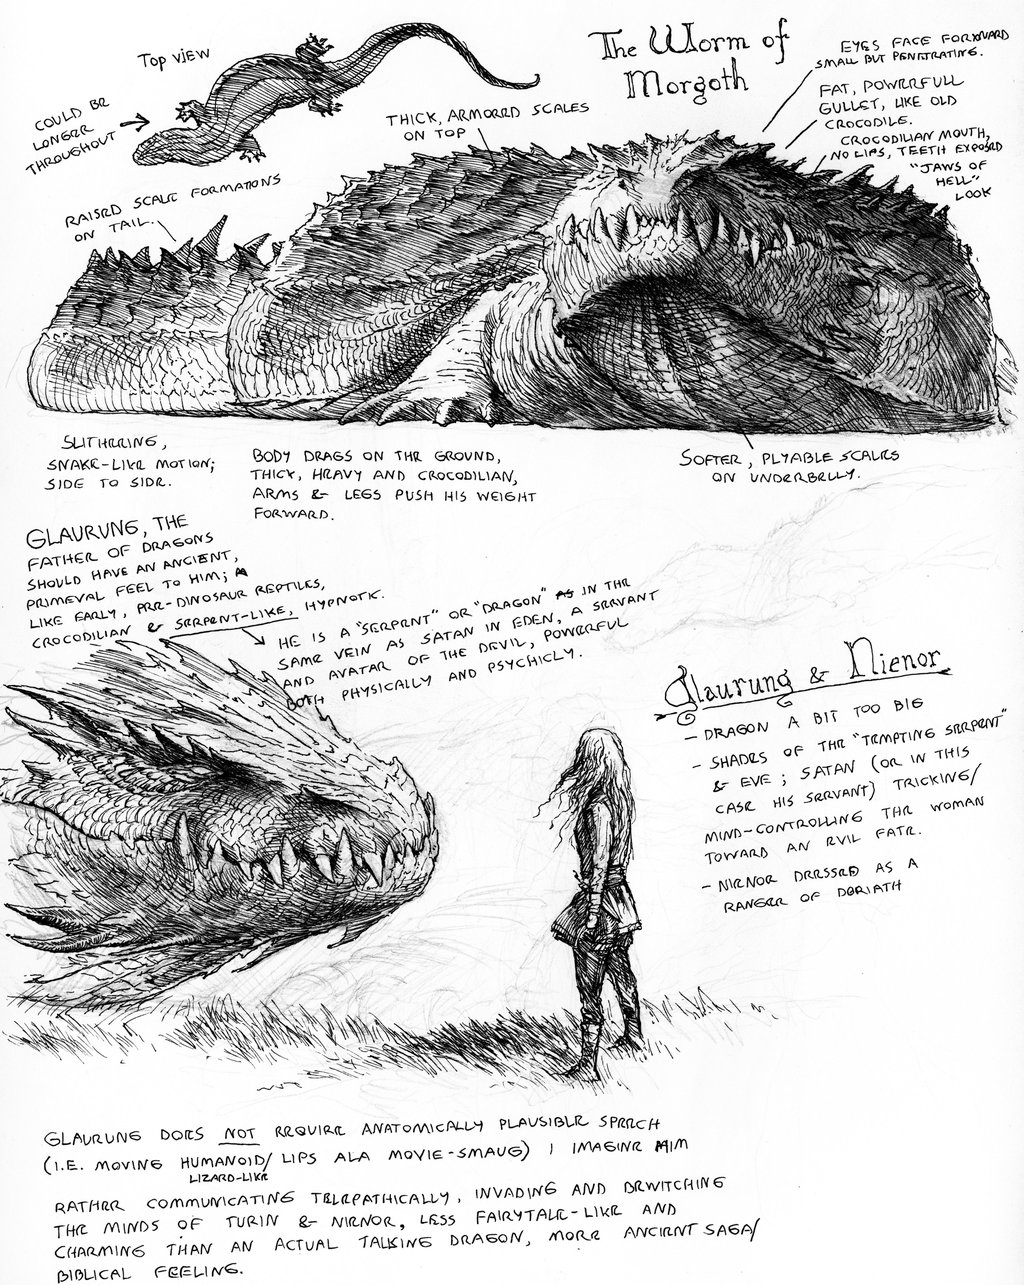 The Worm of
Morgoth
Top view
COULD BE
LONGER
THROUGHOUT
THICK, ARMORED SCALES
ON TOP
EYES FACE FORWARD
SMALL BUT PENETRATING.
FAT, POWERFULL
GULLET, LIKE OLD
CROCODILE.
CROCODILIAN MOUTH,
NO LIPS, TEETH EXPOSED
"JAWS OF
HELL"
LOOK
RAISED SCALE FORMATIONS
ON TAIL.
SLITHERING,
SNAKE-LIKE MOTION;
SIDE TO SIDE.
BODY DRAGS ON THE GROUND,
THICK, HEAVY AND CROCODILIAN,
ARMS & LEGS PUSH HIS WEIGHT
FORWARD.
SOFTER, PLYABLE SCALES
ON UNDERBELLY.
GLAURUNG, THE
FATHER OF DRAGONS
SHOULD HAVE AN ANCIENT,
PRIMEVAL FEEL TO HIM;
LIKE EARLY, PRE-DINOSAUR REPTILES,
CROCODILIAN & SERPENT-LIKE, HYPNOTIC.
HE IS A "SERPENT" OR "DRAGON" AS IN THE
SAME VEIN AS SATAN IN EDEN, A SERVANT
AND AVATAR OF THE DEVIL, POWERFUL
BOTH PHYSICALLY AND PSYCHICLY.
Glaurung & Nienor
- DRAGON A BIT TOO BIG
- SHADES OF THE "TEMPTING SERPENT"
& EVE; SATAN (OR IN THIS
CASE HIS SERVANT) TRICKING/
MIND-CONTROLLING THE WOMAN
TOWARD AN EVIL FATE.
- NIENOR DRESSED AS A
RANGER OF DORIATH
GLAURUNG DOES NOT REQUIRE ANATOMICALLY PLAUSIBLE SPEECH
(I.E. MOVING HUMANOID/ LIPS ALA MOVIE-SMAUG) I IMAGINE HIM
LIZARD-LIKE
RATHER COMMUNICATING TELEPATHICALLY, INVADING AND BEWITCHING
THE MINDS OF TURIN & NIENOR, LESS FAIRYTALE-LIKE AND
CHARMING THAN AN ACTUAL TALKING DRAGON, MORE ANCIENT SAGA/
BIBLICAL FEELING.